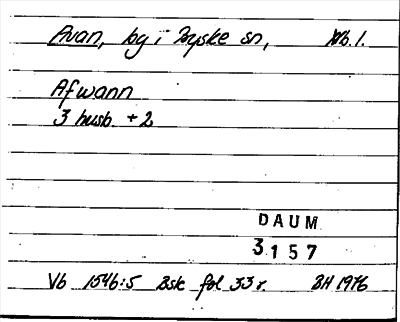 Avan, by i Byske sn, Vb. 1.
Afwann
3 husb. + 2
DAUM
3157
Vb 1546:5 Bsk fol 33 r. BH 1976